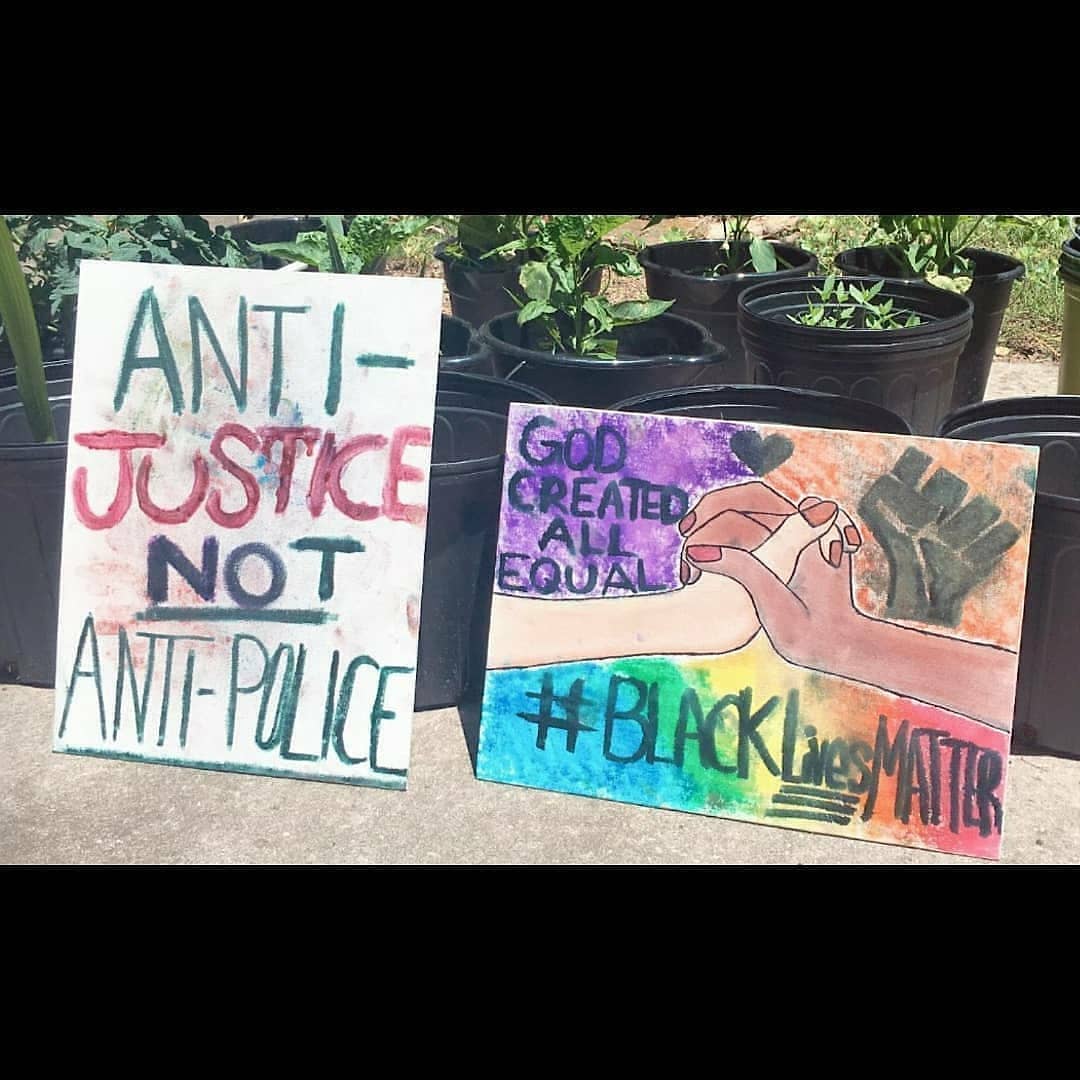 ANTI-
JUSTICE
NOT
ANTI-POLICE
GOD
CREATED
ALL
EQUAL
#BLACKLivesMATTER